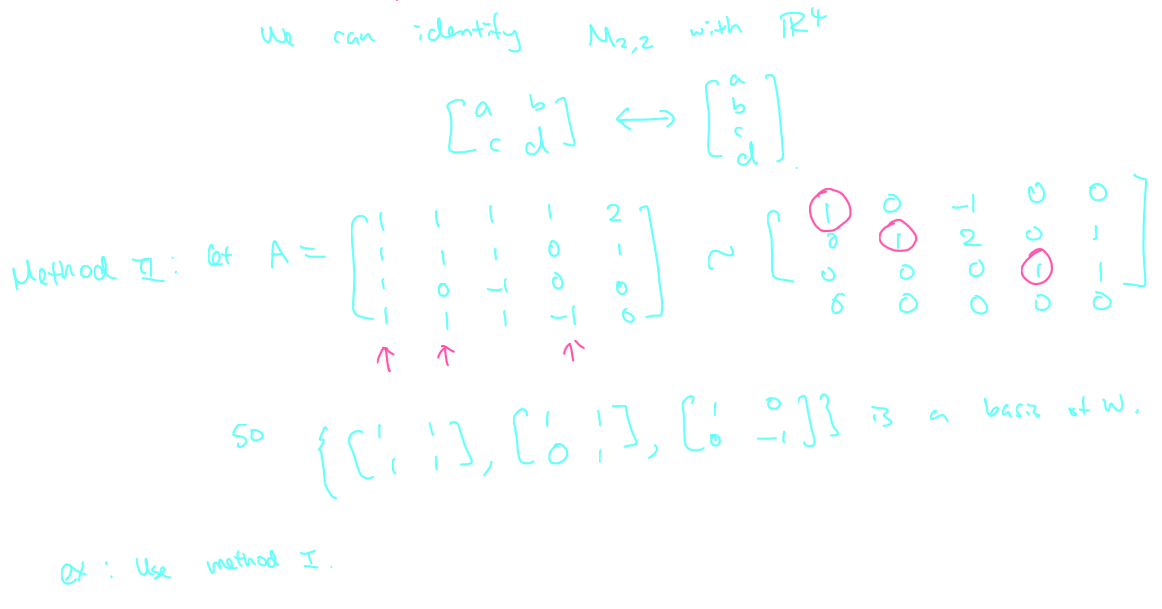 We can identify M₂,₂ with ℝ⁴
[a b; c d] ↔ [a; b; c; d].
Method II: let A = [1 1 1 1 2; 1 1 1 0 1; 1 0 -1 0 0; 1 1 1 -1 0] ~ [1 0 -1 0 0; 0 1 2 0 1; 0 0 0 1 1; 0 0 0 0 0]
↑ ↑ ↑
so {[1 1; 1 1], [1 1; 0 1], [1 0; 0 -1]} is a basis of W.
ex: Use method I.